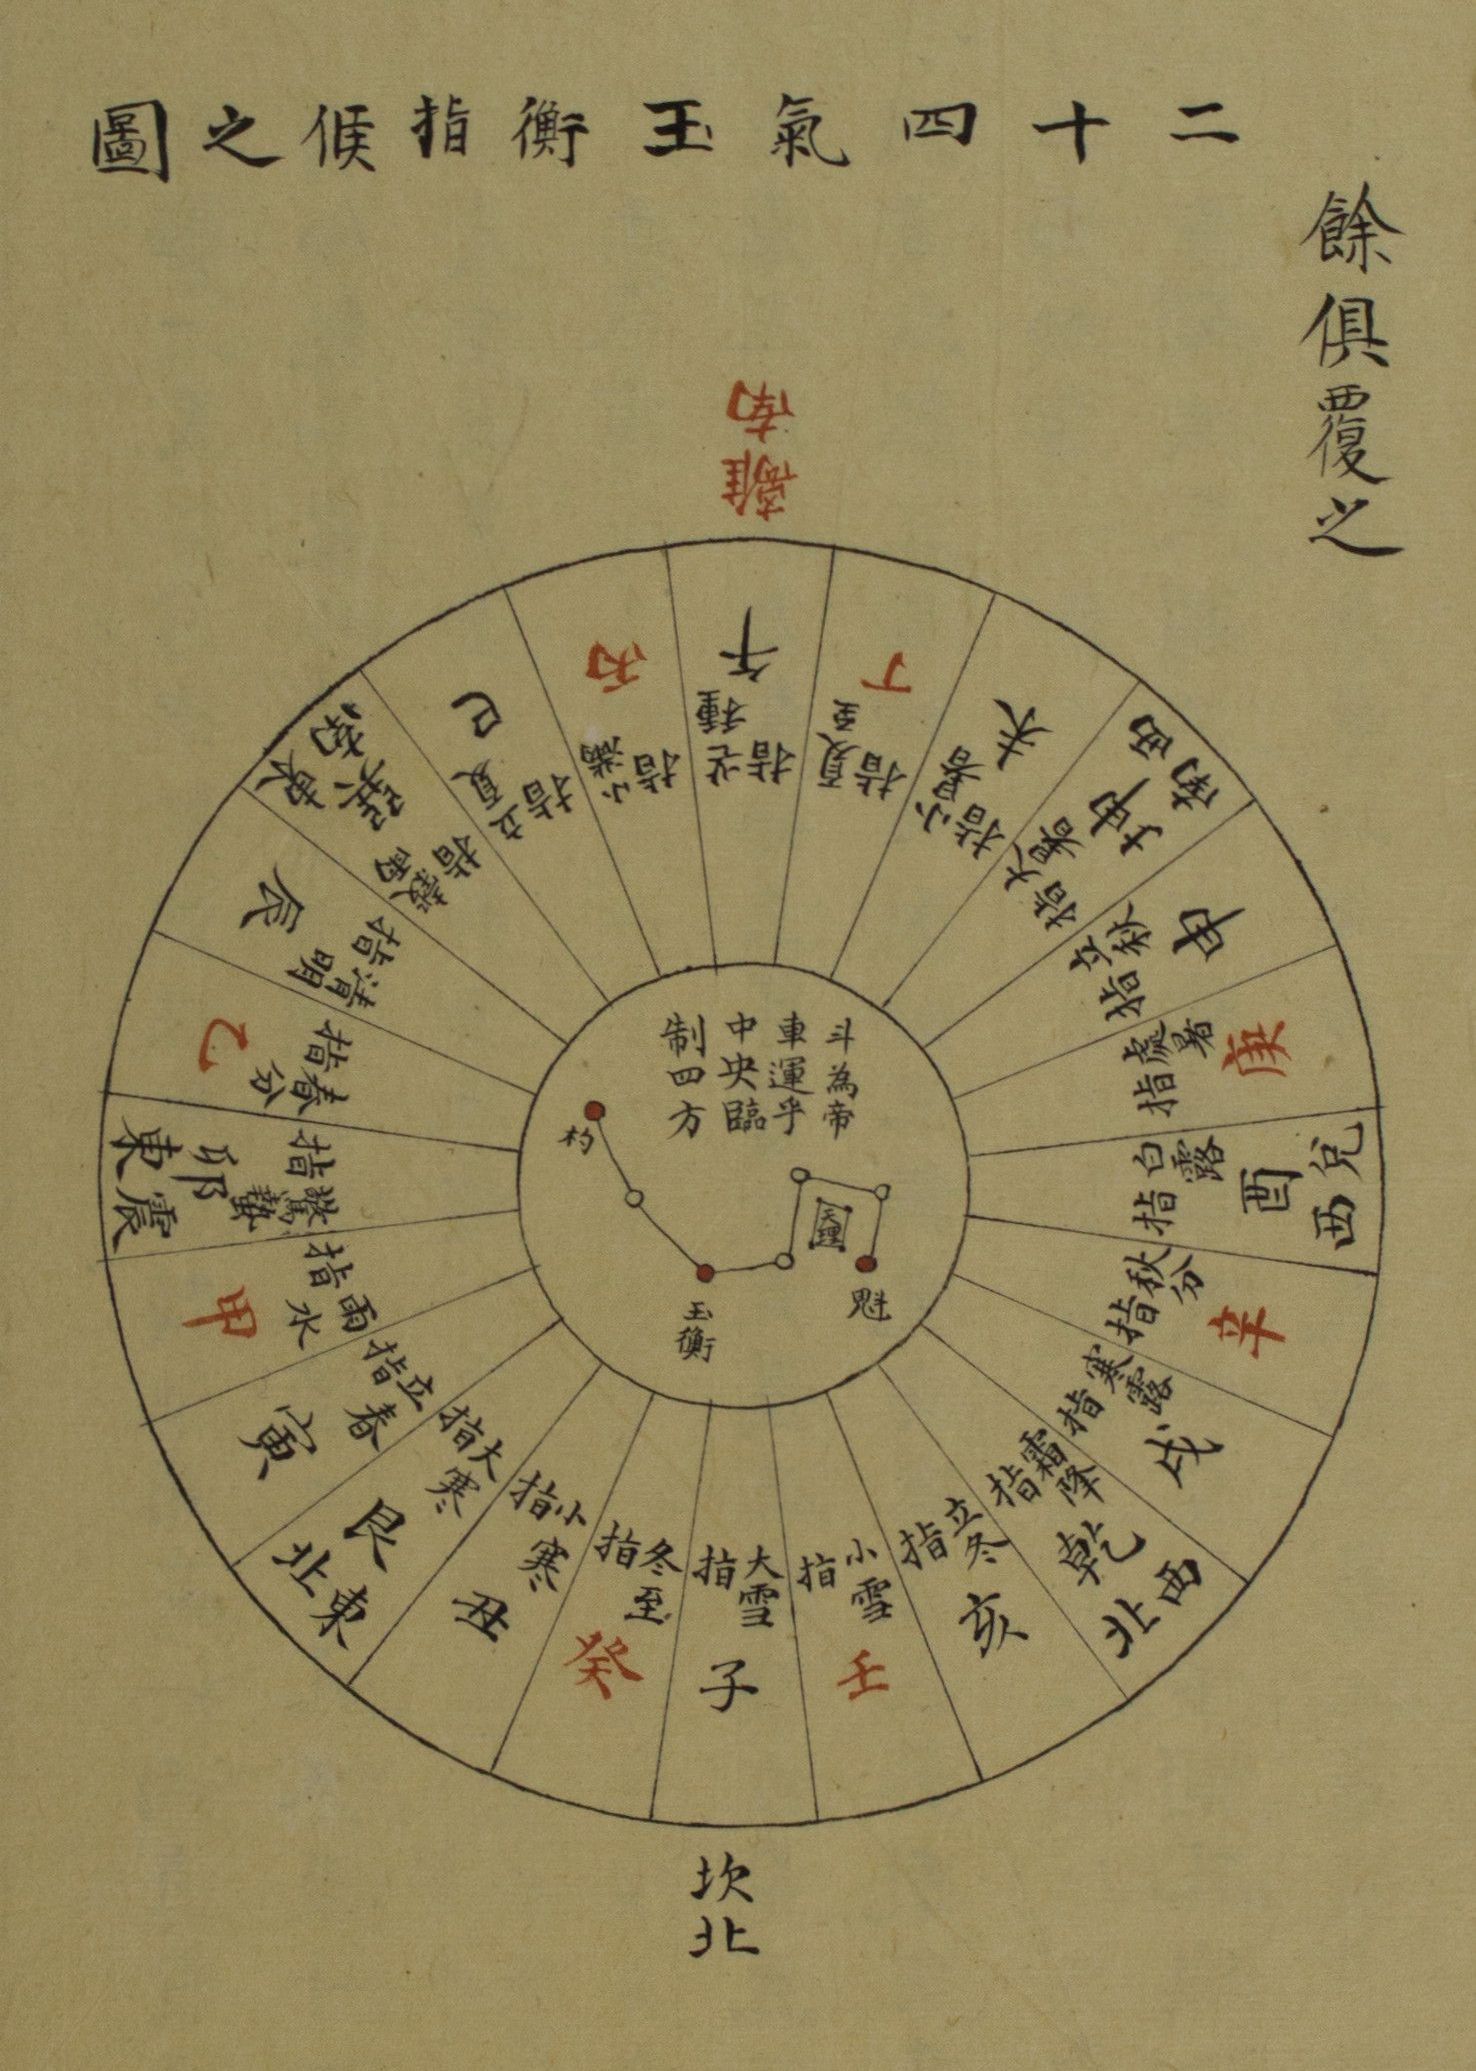 餘俱覆之
二十四氣玉衡指候之圖
離南
午
指芒種
丁
指夏至
未
指小暑
坤
西南
指大暑
申
指立秋
庚
指處暑
兌西
酉
指白露
辛
指秋分
戌
指寒露
乾
西北
指霜降
亥
指立冬
壬
指小雪
子
指大雪
坎北
癸
指冬至
丑
指小寒
艮
東北
指大寒
寅
指立春
甲
指雨水
東震
卯
指驚蟄
乙
指春分
辰
指清明
巽
東南
指穀雨
巳
指立夏
丙
指小滿
斗為帝
車運乎
中央臨
制四方
杓
玉衡
魁
天理